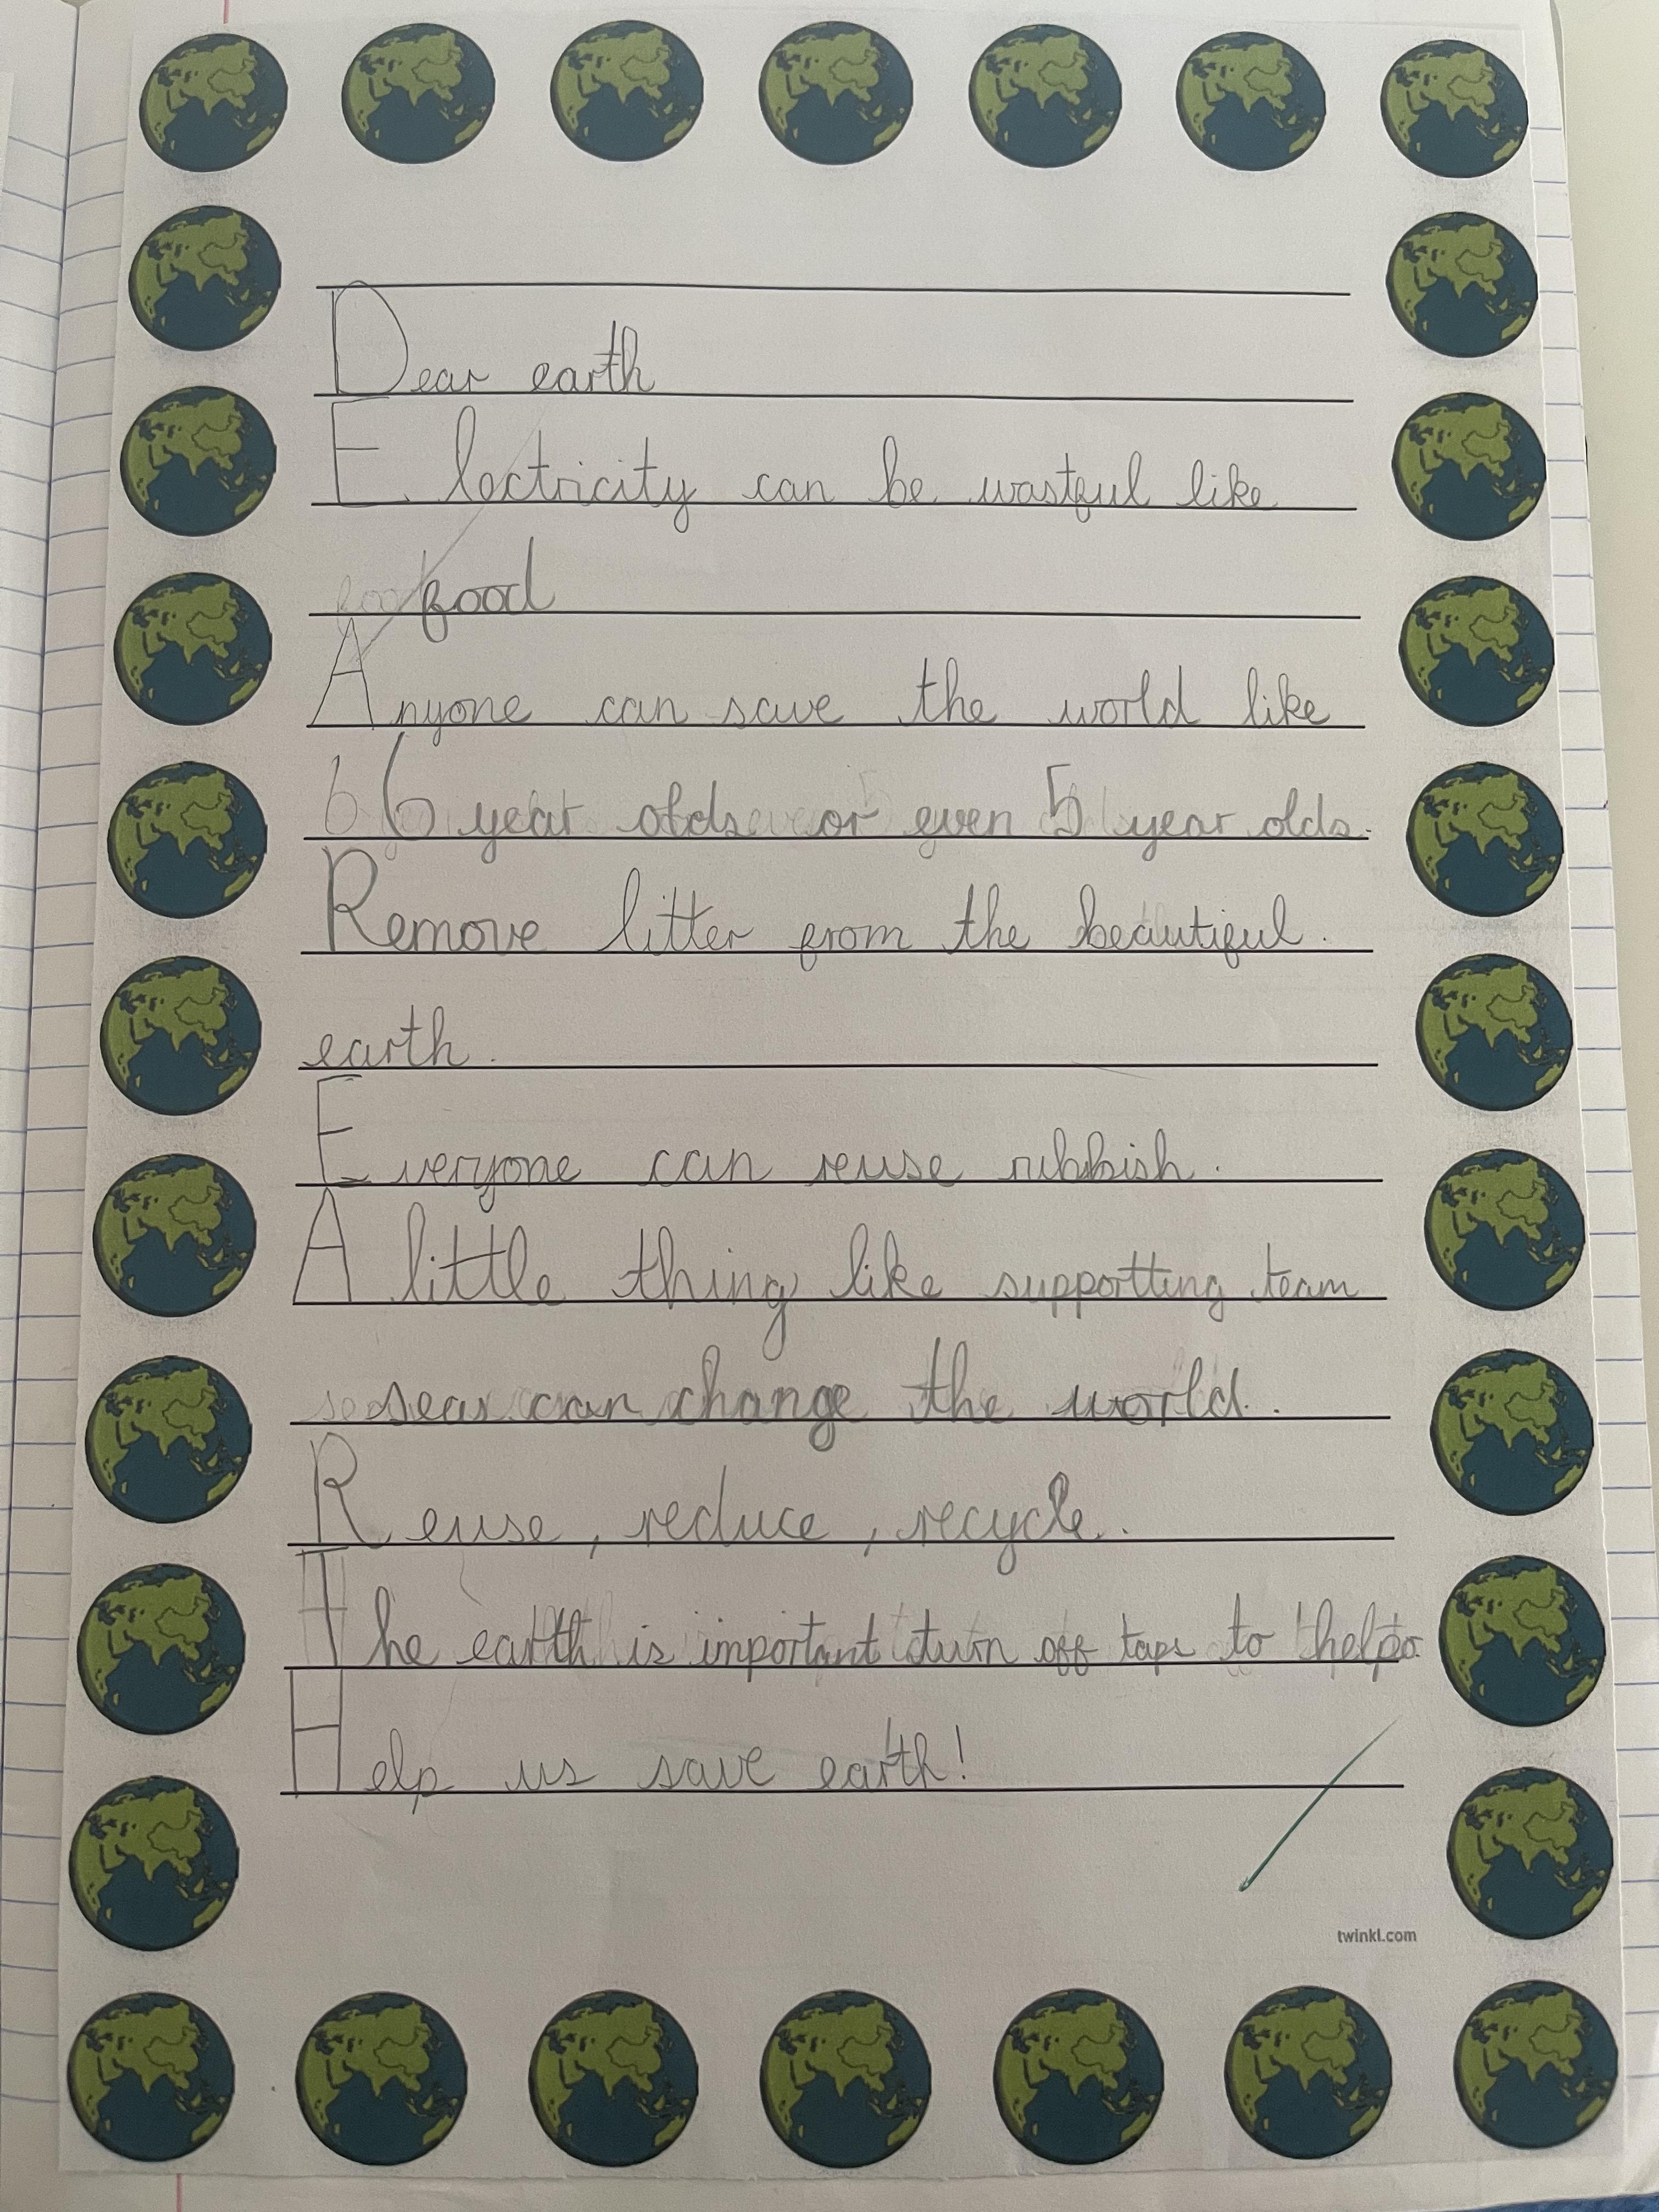 Dear earth
Electricity can be wasteful like
food
Anyone can save the world like
6 6 year olds or even 5 year olds.
Remove litter from the beautiful
earth.
Everyone can reuse rubbish.
A little thing like supportting team
seas can change the world.
Reuse, reduce, recycle.
The earth is important turn off taps to help
Help us save earth!
twinkl.com